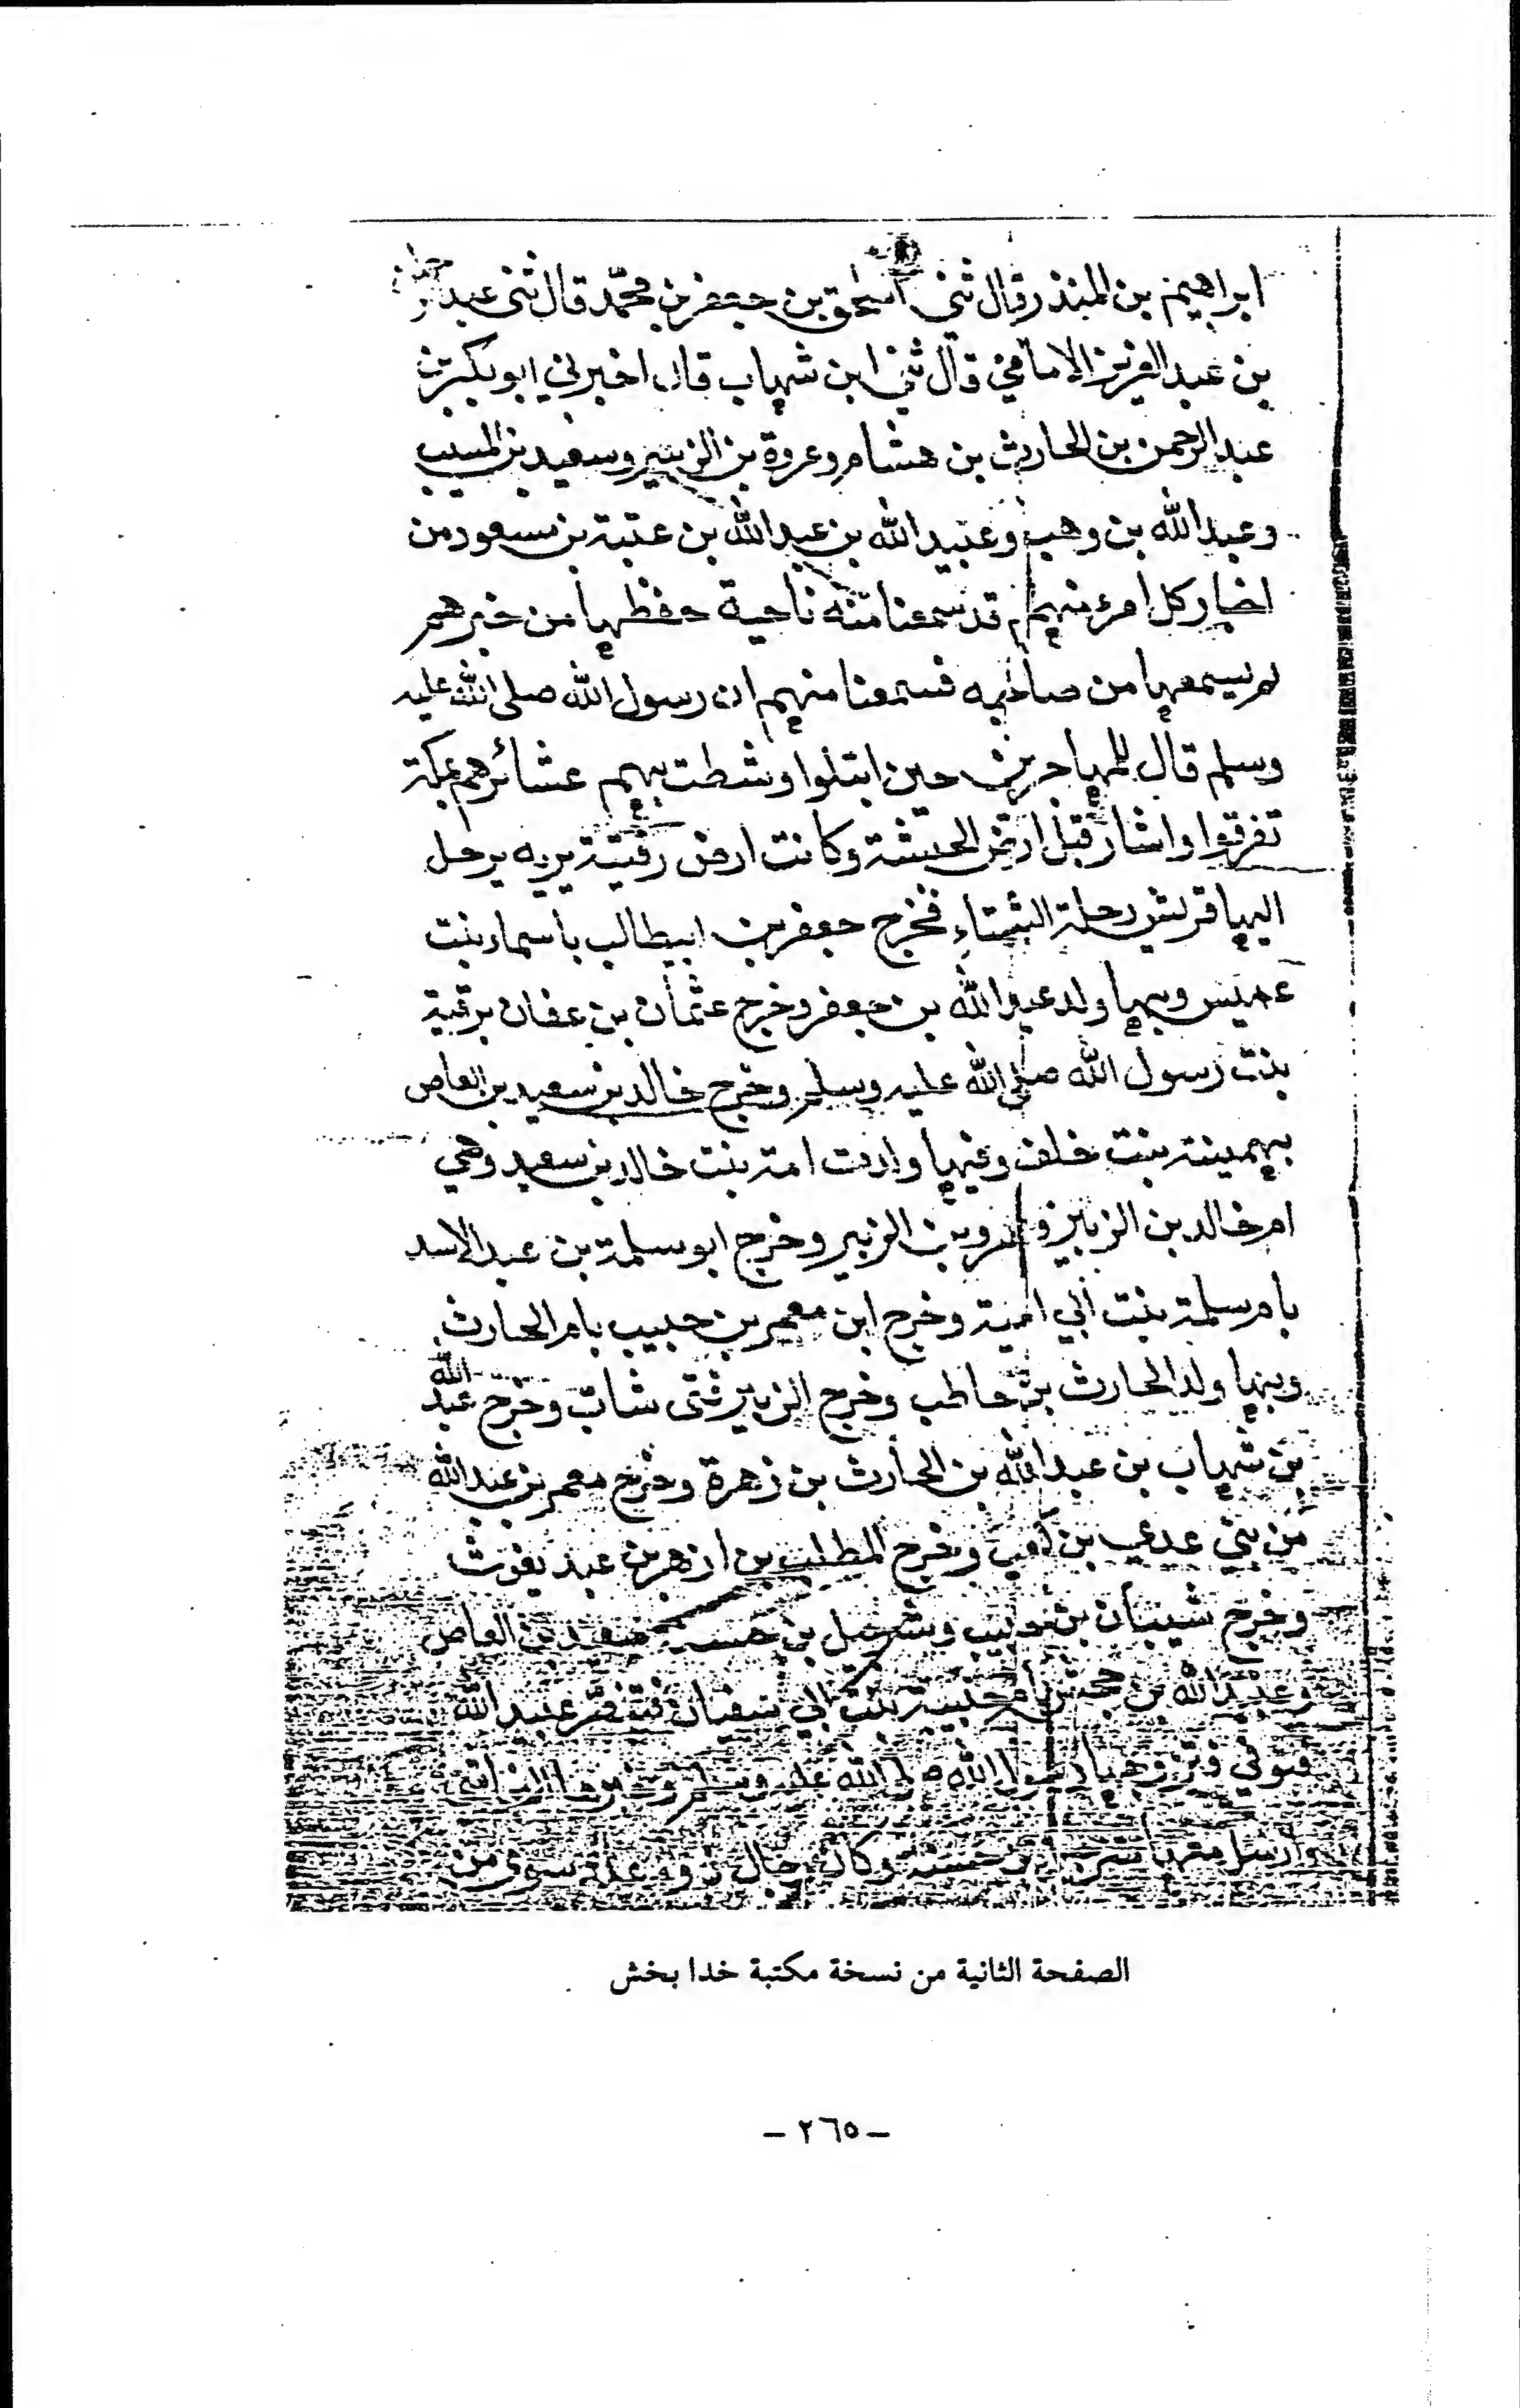 ابراهيم بن المنذر قال ثنى اسحق بن جعفر بن محمد قال ثنى عبد
بن عبد العزيز الامامي قال ثنى ابن شهاب قال اخبرني ابو بكر بن
عبد الرحمن بن الحارث بن هشام وعروة بن الزبير وسعيد بن المسيب
وعبد الله بن وهب وعبيد الله بن عبد الله بن عتبة بن مسعود من
اخبار كل امرء منهم قد سمعنا منه ناحية حفظها من خبر هم
لم يسمعها من صاحبه فسمعنا منهم ان رسول الله صلى الله عليه
وسلم قال للمهاجرين حين ابتلوا وشطت بهم عشائرهم بمكة
تفرقوا واشار قبل ارض الحبشة وكانت ارض يرحل
اليها قريش رحلة الشتاء فخرج جعفر بن ابيطالب باسماء بنت
عميس وبها ولد عبد الله بن جعفر وخرج عثمان بن عفان برقية
بنت رسول الله صلى الله عليه وسلم وخرج خالد بن سعيد بن العاص
بهمينة بنت خلف وفيها ولدت امة بنت خالد بن سعيد وهي
ام خالد بن الزبير وعمرو بن الزبير وخرج ابو سلمة بن عبد الاسد
بام سلمة بنت ابي امية وخرج ابن معمر بن حبيب بام الحارث
وبها ولد الحارث بن حاطب وخرج الزبير فتى شاب وخرج عبد الله
بن شهاب بن عبد الله بن الحارث بن زهرة وخرج معمر بن عبد الله
من بني عدي بن كعب وخرج المطلب بن ازهر بن عبد يغوث
وخرج بن حسنة سعيد بن العاص
وعبيد الله بن جحش بام حبيبة بنت ابي سفيان عبيد الله
فتوفي فتزوجها رسول الله صلى الله عليه وسلم
وارسل معها حسنة وكان
الصفحة الثانية من نسخة مكتبة خدا بخش
- ٢٦٥ -